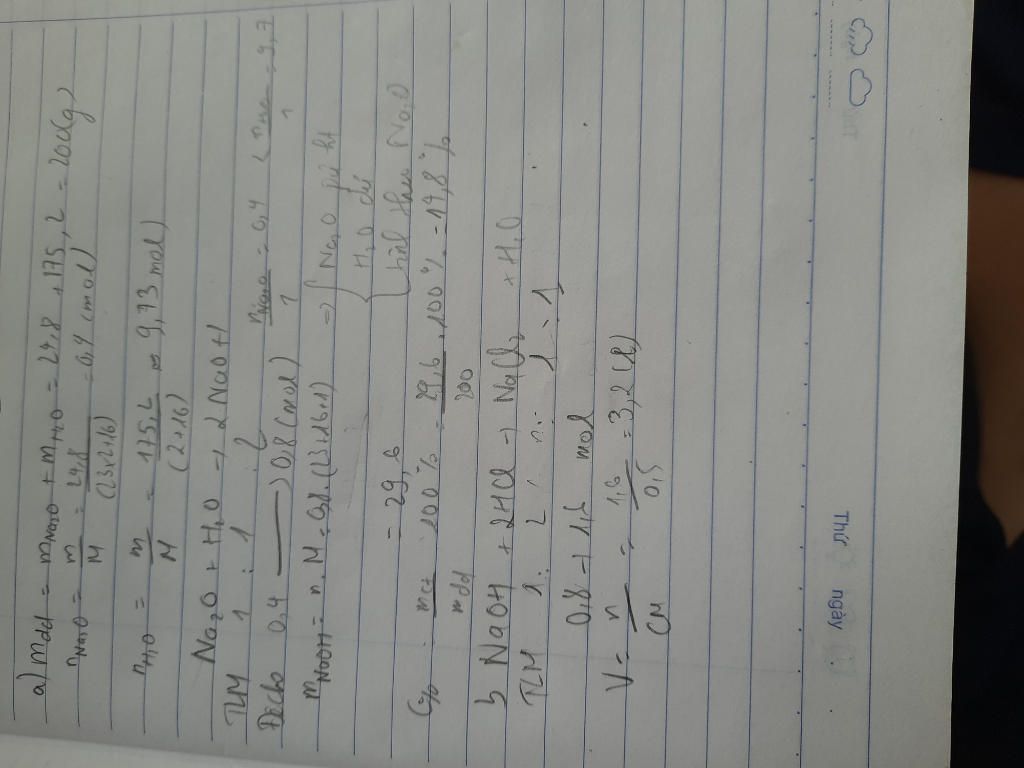 a) mdd = mNa2O + mH2O = 24,8 + 175,2 = 200(g)
nNa2O = m/M = 24,8/(23x2+16) = 0,4 (mol)
nH2O = m/M = 175,2/(2+16) ≈ 9,73 mol)
Na2O + H2O → 2 NaOH
TLM 1 : 1 : 2
0,4 → 0,8 (mol)
nNa2O/1 = 0,4 < nH2O/1 = 9,7
mNaOH = n.M = 0,8(23+16+1) => { Na2O pứ hết
= 29,6
H2O dư
{ tính theo Na2O
C% = mct/mdd . 100% = 29,6/200 . 100% = 14,8%
b NaOH + 2HCl → NaCl2 + H2O
TLM 1 : 2 : 1 : 1
0,8 → 1,6 mol
V = n/CM = 1,6/0,5 = 3,2 (l)
Thứ
ngày